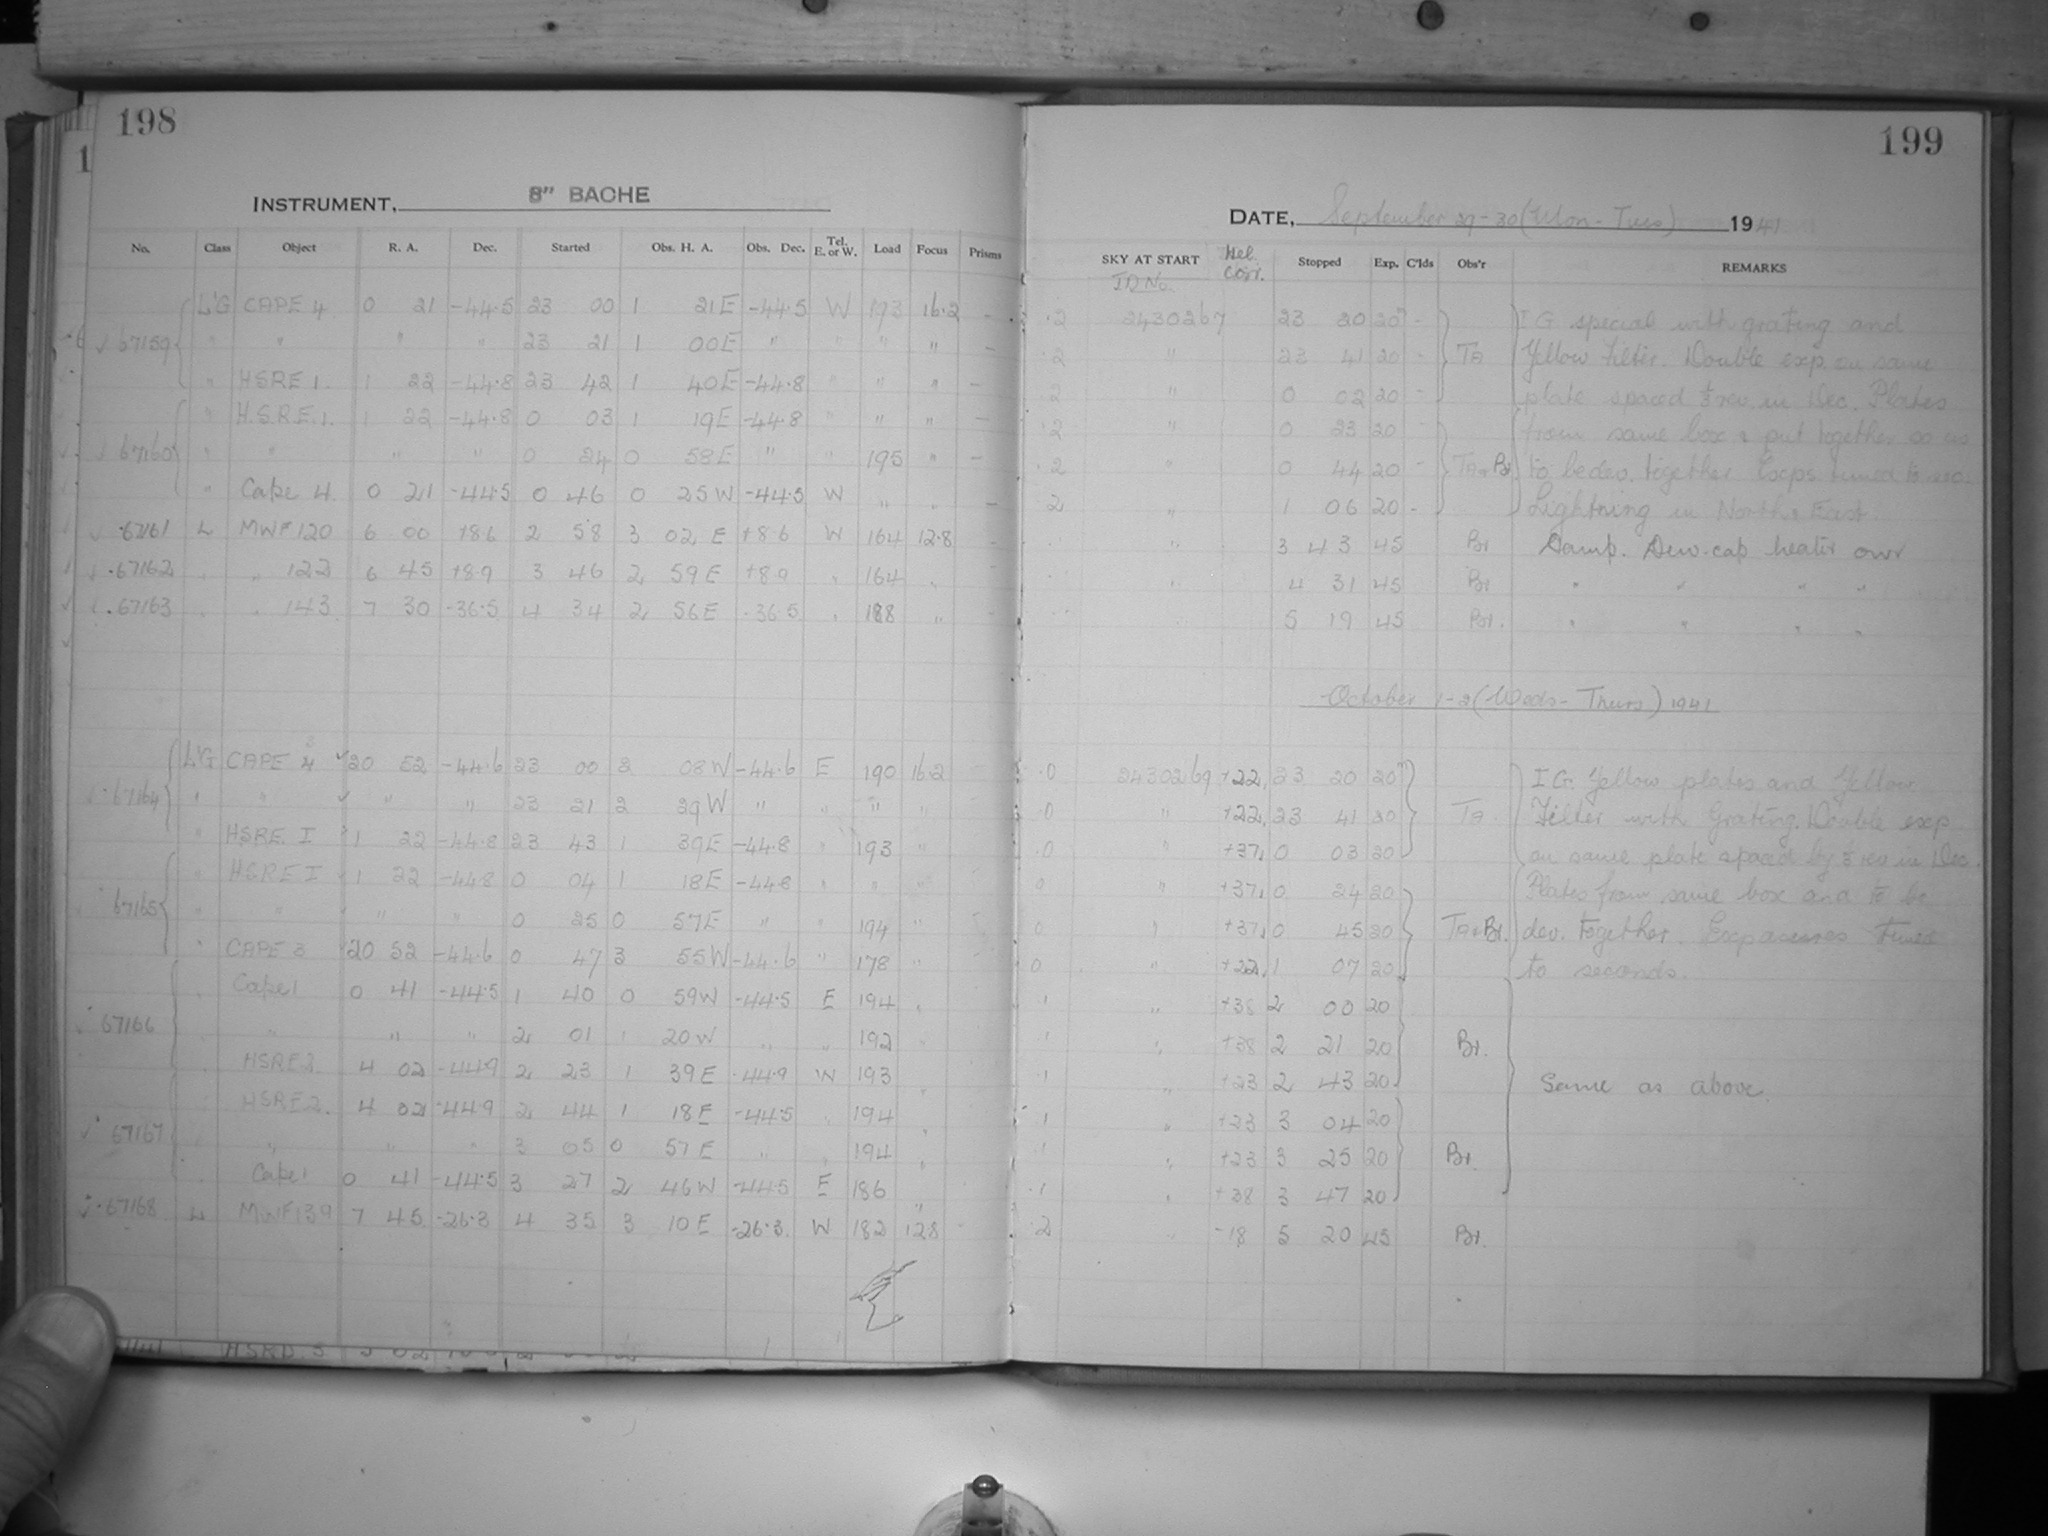 198
INSTRUMENT, 8" BACHE
No. Class Object R. A. Dec. Started Obs. H. A. Obs. Dec. Tel. E. or W. Load Focus Prisms
L'G CAPE 4 0 21 -44.5 23 00 1 21E -44.5 W 193 16.2 -
67159 " " " " 23 21 1 00E " " " " -
" HSRE 1. 1 22 -44.8 23 42 1 40E -44.8 " " " -
" H.S.R.E.1. 1 22 -44.8 0 03 1 19E -44.8 " " " -
67160 " " " " 0 24 0 58E " " 195 " -
" Cape 4. 0 21 -44.5 0 46 0 25W -44.5 W " " -
67161 L MWF 120 6 00 +8.6 2 58 3 02 E +8.6 W 164 12.8
67162 " 122 6 45 +8.9 3 46 2 59E +8.9 " 164 "
67163 " 143 7 30 -36.5 4 34 2 56E -36.5 " 188 "
L'G CAPE 4 3 20 52 -44.6 23 00 2 08W -44.6 E 190 16.2
67164 " " " " 23 21 2 29W " " " "
" HSRE I 1 22 -44.8 23 43 1 39E -44.8 " 193 "
" HSRE I 1 22 -44.8 0 04 1 18E -44.8 " " "
67165 " " " " 0 25 0 57E " " 194 "
" CAPE 3 20 52 -44.6 0 47 3 55W -44.6 " 178 "
Cape 1 0 41 -44.5 1 40 0 59W -44.5 E 194 "
67166 " " " 2 01 1 20W " " 192 "
HSRE2. 4 02 -44.9 2 23 1 39E -44.9 W 193 "
HSRE2. 4 02 -44.9 2 44 1 18E -44.5 " 194 "
67167 " " " 3 05 0 57E " " 194 "
Cape 1 0 41 -44.5 3 27 2 46W -44.5 E 186 "
67168 L MWF139 7 45 -26.3 4 35 3 10E -26.3 W 182 12.8
199
DATE, September 29-30 (Mon-Tues) 1941
SKY AT START Hel. Corr. Stopped Exp. C'lds Obs'r REMARKS
JD No.
.2 2430267 23 20 20m - IG special with grating and
.2 " 23 41 20 - Ta Yellow Filter. Double exp. on same
.2 " 0 02 20 - plate spaced ½ rev. in Dec. Plates
.2 " 0 23 20 from same box & put together so as
.2 " 0 44 20 - Ta & Br. to be dev. together. Exps timed to
.2 " 1 06 20 - Lightning in North & East.
" 3 43 45 Br Damp. Dew-cap heater on
" 4 31 45 Br " " " "
5 19 45 Br. " " " "
October 1-2 (Weds-Thurs) 1941
.0 2430269 +22 23 20 20m IG Yellow plates and Yellow
.0 " +22 23 41 20 Ta. Filter with Grating. Double exp
.0 " +37 0 03 20 on same plate spaced by ½ rev in Dec.
0 " +37 0 24 20 Plates from same box and to be
0 " +37 0 45 20 Ta & Br. dev. together. Exposures timed
0 " +22 1 07 20 to seconds.
.1 " +38 2 00 20
.1 " +38 2 21 20 Br.
.1 " +23 2 43 20 Same as above.
.1 " +23 3 04 20
.1 " +23 3 25 20 Br.
.1 " +38 3 47 20
.2 -18 5 20 45 Br.